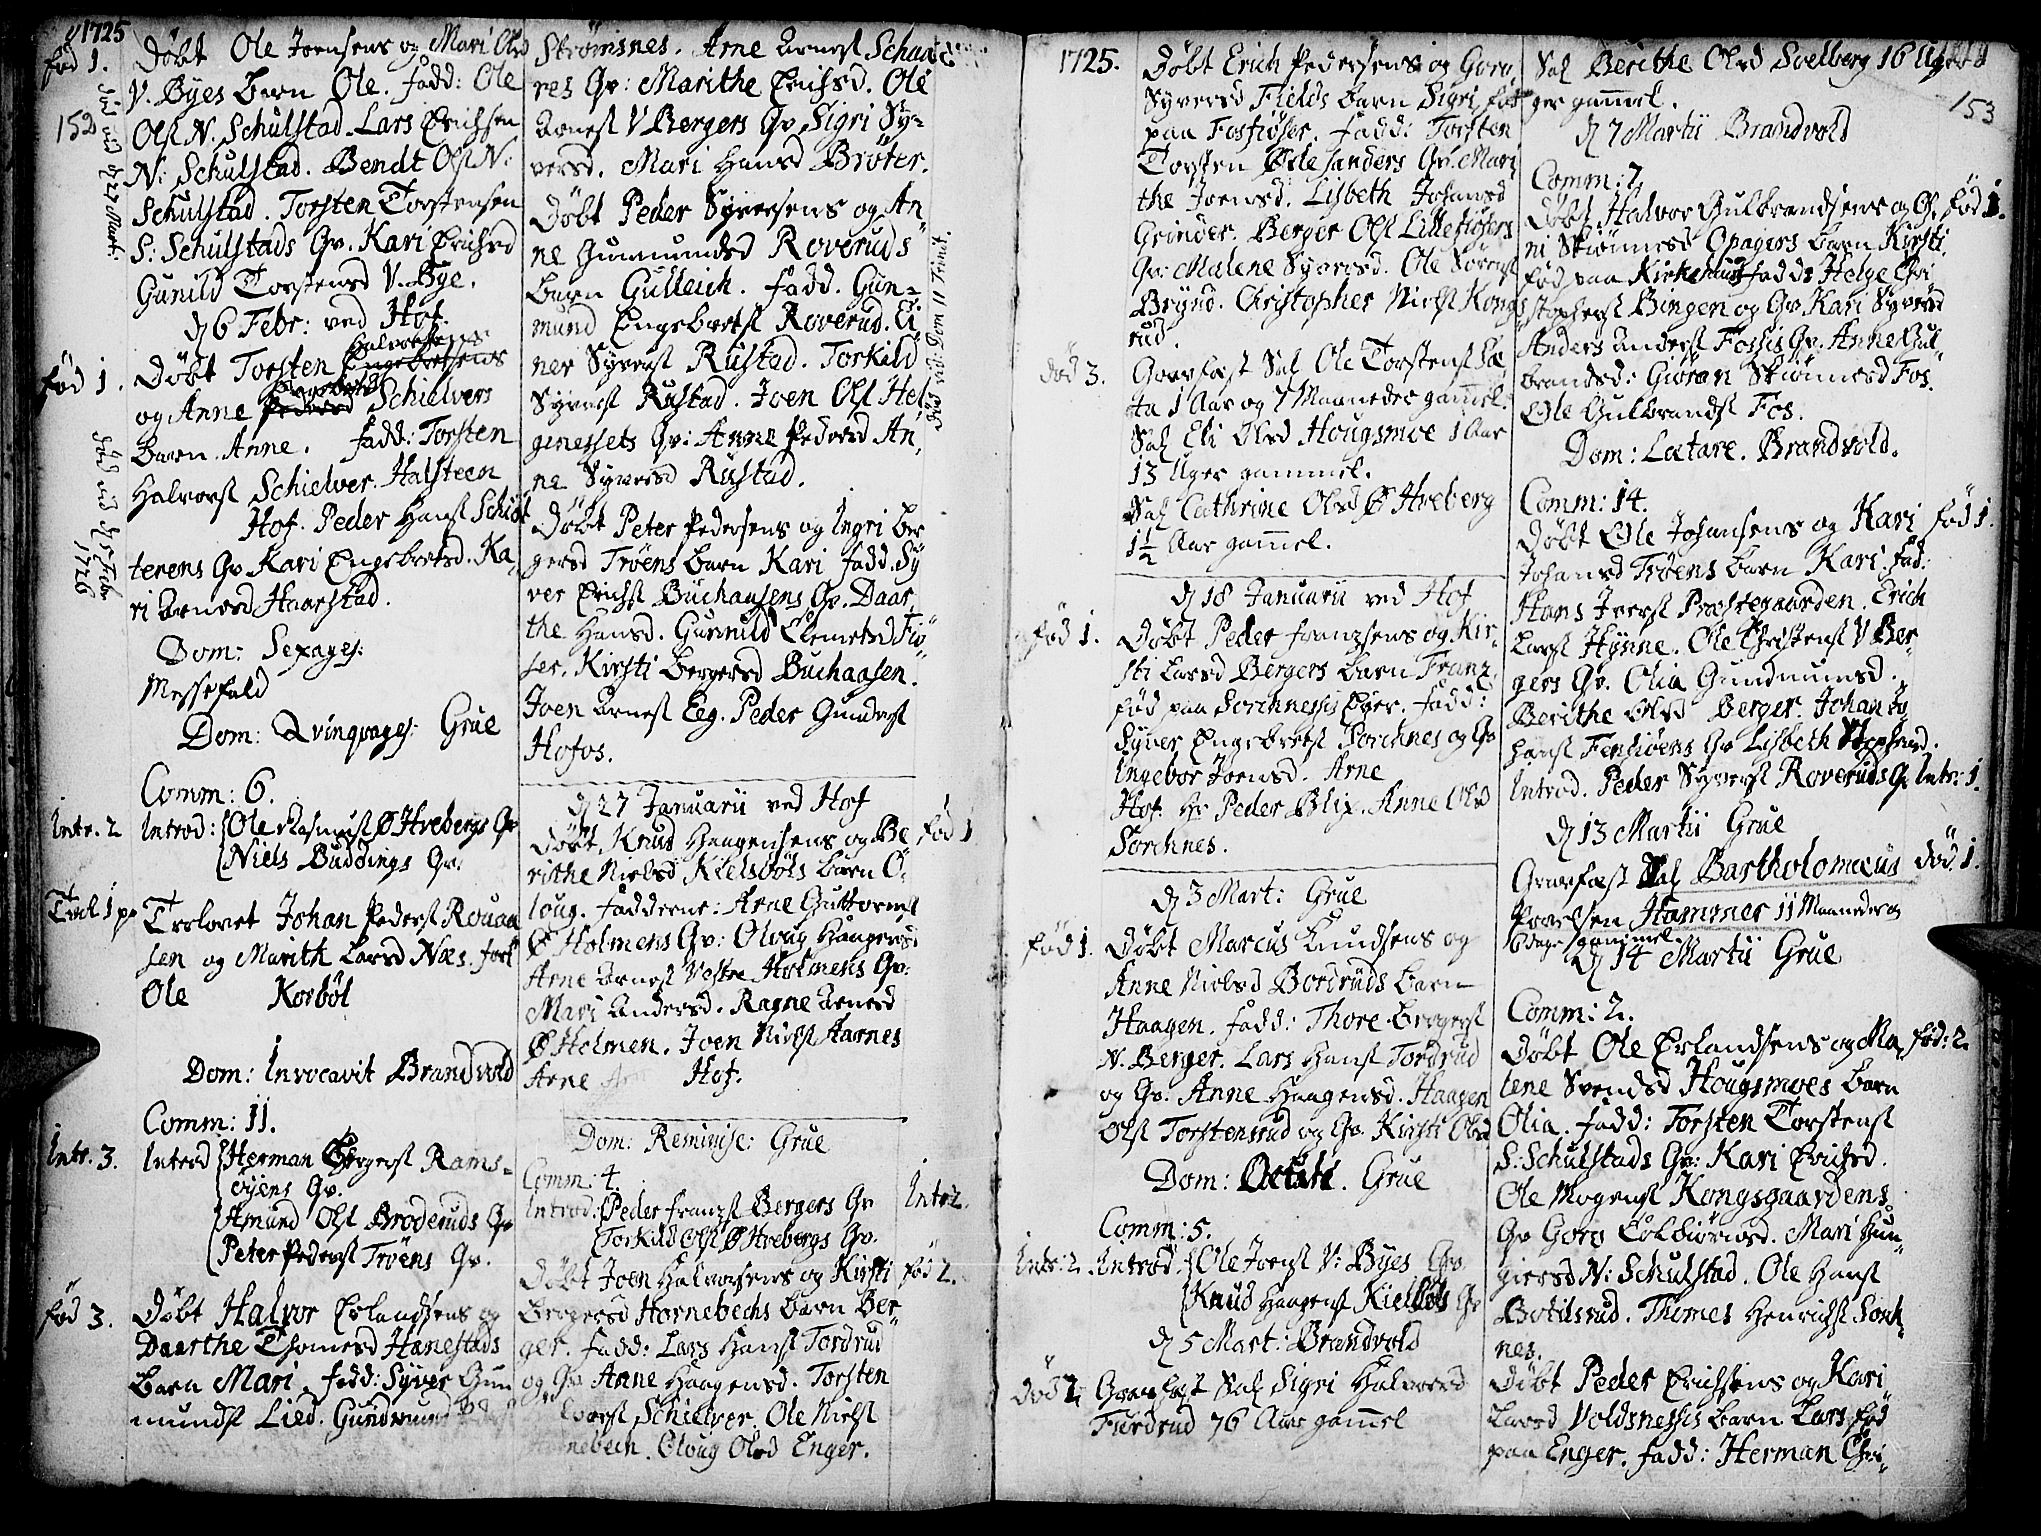 1725
fød 1.
152
Døbt Ole Joensens og Mari Olsd
V. Byes barn Ole. Fadd: Ole
Ols N. Schulstad Lars Erichsen
N: Schulstad. Bendt Ols N:
Schulstad. Torsten Torstensen
S: Schulstads Qv. Kari Erichsd
Gunild Torstensd V. Bye.
d 6 Febr: ved Hof.
Halvorsens
fød 1. Døbt Torsten Engebretsens
Engebretsd
og Anne Pedersd Schielvers
barn Anne. Fadd: Torsten
Halvorst Schielver. Halsteen
Hof. Peder Hanst Schiøt
terens Qv. Kari Engebretsd. Ka,
ri Arnesd Haarstad.
1726
Dom: Sexages:
Messefald
Dom: Qvinqvages: Grue
Comm: 6.
Intr. 2 Introd: Ole Rasmust Ø Hvebergs Qv
Niels Buddings Qv.
Trol 1 p. Trolovet Johan Pederst Rouaa
sen og Marith Larsd Næs. forl
Ole Korbøl
Dom: Invocavit Brandvold
Comm: 11.
Intr. 3. Introd Herman Bergerst Rams-
øyens Qv.
Amund Olst Broderuds Qv
Peter Pederst Trøens Qv.
fød 3. Døbt Halvor Erlandsens og
Daarthe Thomesd Hanestads
barn Mari. Fadd: Syver Gun
mundst Lied. Gundmund
Strømsnes. Arne Arnest Schaa
res Qv: Marithe Erichsd. Ole
Arnest V Bergers Qv. Sigri Sy=
versd. Mari Hansd Brøter.
Døbt Peder Syversens og An"
ne Gunmundsd Roveruds
barn Gulleich. Fadd. Gun=
mund Engebretst Roverud. Ei
ner Syverst Rustad. Torkild
Syverst Rustad. Joen Olst Hel
genessets Qv: Anne Pedersd An,
ne Syversd Rustad.
død vid: Dom 11 Trinit.
Døbt Peter Pedersens og Ingri Ber
gersd Trøens barn Kari Fadd. Sy
ver Erichst Buchaasens Qv. Daar
the Hansd. Gunnild Clemetsd Fiø"
ser. Kirsti Bergersd Buchaasen.
Joen Arnest Eeg. Peder Gunderst
Hofos.
d 27 Januarii ved Hof
Døbt Knud Haagensens og Be fød 1
rithe Nielsd Kielsbøls barn O,
loug. Fadderne: Arne Guttormst
Ø Holmens Qv: Oloug Haagensd
Arne Arnest Vestre Holmens Qv:
Mari Andersd. Ragne Arnesd
Ø Holmen. Joen Nielst Aarnes
Arne Hof.
Dom: Reminise: Grue
Comm: 4.
Introd: Peder Franzst Bergers Qv Intr 2.
Torkild Olst Ø Hvebergs Qv.
Døbt Joen Halvorsens og Kirsti fød 2.
Bergersd Hornebechs barn Ber
ger. Fadd: Lars Hanst Tordrud
og Qv Anne Haagensd. Torsten
Schielver. Ole Nielst
Oloug Olsd Enger.
1725. Døbt Erich Pedersens og Goro
Syversd Fields barn Sigri, fød
paa Fosfiøser. Fadd: Torsten
Torsten Østesanders Qv. Mari
the Joensd. Lisbeth Johansd
Grinder. Berger Olst Lillefiøsers
Qv: Malene Syversd. Ole Sørenst
Brynd. Christopher Nielst Kongs
rud.
død 3. Gravfæst Sal Ole Torstenst Sæ,
ta 1 Aar og 7 Maaneder gamel.
Sal Eli Olsd Hougsmoe 1 Aar
13 Uger gammel.
Sal Cathrine Olsd Ø Hveberg
1½ Aar gamel.
d 18 Januarii ved Hof
fød 1. Døbt Peder Franzsens og Kir,
sti Larsd Bergers barn Franz
fød paa Sorchnessis Eyer. Fadd:
Syver Engebretst Sorchnes og Qv
Ingebor Joensd. Arne
Hof. Hr Peder Blix. Anne Olsd
Sorchnes.
d 3 Mart: Grue
fød 1. Døbt Marcus Knudsens og
Anne Nielsd Bordruds barn
Haagen. Fadd: Thore Bergerst
N. Berger. Lars Hanst Tordrud
og Qv. Anne Haagensd. Haagen
Olst Torstensrud og Qv. Kirsti Olsd
Dom: Oculi. Grue
Comm: 5.
Intr: 2. Introd. Ole Joenst V: Byes Qv.
Knud Haagenst Kielsbøls Qv
d 5 Mart: Brandvold
død 2 Gravfæst Sal Sigri Halvorsd
Furdrud 76 Aar gamel
Sal Berithe Olsd Svelberg 16 U
ger gamel.
153
d 7 Martii Brandvold
Comm: 7,
Døbt Halvor Gulbrandsens og G fød 1.
ni Skiønnesd Opagers barn Kirsti
fød paa Kirkehaug. Fadd: Helge Chri
stopherst Bingen og Qv. Kari Syversd
Anders Anderst Fossis Qv. Anne Gul"
brandsd: Giøran Skiønnesd Fos.
Ole Gulbrandst Fos.
Dom: Lætare. Brandvold.
Comm: 14.
Døbt Ole Johansens og Kari fød 1.
Johansd Trøens barn Kari. Fad:
Hans Iverst Præstegaarden. Erich
Larst Hynne. Ole Christenst V Ber,
gers Qv. Olia Gundmunsd.
Berithe Olsd Berger. Johan Jo
hanst Fenhøens Qv Lisbeth Stephensd.
Introd. Peder Syverst Roveruds Qv Intr: 1.
d 13 Martii Grue
Gravfæst Sal Bartholomæus død 1.
Poulsen Hammer 11 Maaneder og
dage gammel.
d 14 Martii Grue
Comm: 2.
Døbt Ole Erlandsens og Ma, fød: 2.
lene Svendsd Hougsmoes barn
Olia. Fadd: Torsten Torstenst
S: Schulstads Qv: Kari Erichsd.
Ole Mogenst Kongsgaardens
Qv Goro Colbiørnsd. Mari Gun"
giersd N: Schulstad. Ole Hanst
Botilsrud. Thomes Henrichst Sork,
nes.
Døbt Peder Erichsens og Kari
Larsd Voldsnessis barn Lars fød
paa Enger. Fadd: Herman Chri"